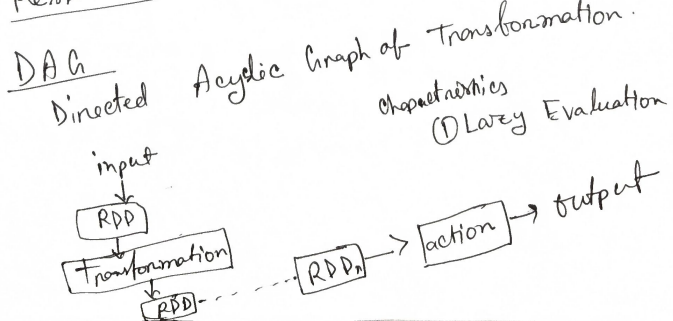 DAG
Directed Acyclic Graph of Transformation.
① Lazy Evaluation
input
RDD
Transformation
RDD
RDDn
action
output